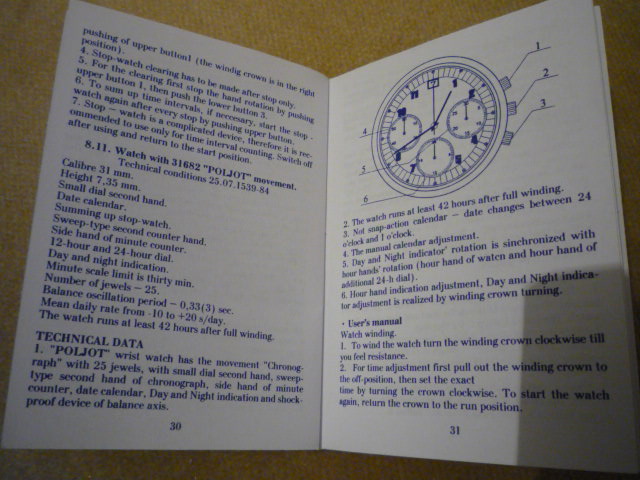 pushing of upper button1 (the windig crown is in the right
position).
4. Stop-watch clearing has to be made after stop only.
5. For the clearing first stop the hand rotation by pushing
upper button 1, then push the lower button 3.
6. To sum up time intervals, if necessary, start the stop -
watch again after every stop by pushing upper button.
7. Stop – watch is a complicated device, therefore it is rec-
ommended to use only for time interval counting. Switch off
after using and return to the start position.
8.11. Watch with 31682 "POLJOT" movement.
Technical conditions 25.07.1539-84
Calibre 31 mm.
Height 7,35 mm.
Small dial second hand.
Date calendar.
Summing up stop-watch.
Sweep-type second counter hand.
Side hand of minute counter.
12-hour and 24-hour dial.
Day and night indication.
Minute scale limit is thirty min.
Number of jewels – 25.
Balance oscillation period – 0,33(3) sec.
Mean daily rate from -10 to +20 s/day.
The watch runs at least 42 hours after full winding.
TECHNICAL DATA
1. "POLJOT" wrist watch has the movement "Chronog-
raph" with 25 jewels, with small dial second hand, sweep-
type second hand of chronograph, side hand of minute
counter, date calendar, Day and Night indication and shock-
proof device of balance axis.
30
1
2
3
4
5
6
2. The watch runs at least 42 hours after full winding.
3. Not snap-action calendar – date changes between 24
o'clock and 1 o'clock.
4. The manual calendar adjustment.
5. Day and Night indicator' rotation is sinchronized with
hour hands' rotation (hour hand of watcn and hour hand of
additional 24-h dial).
6. Hour hand indication adjustment, Day and Night indica-
tor adjustment is realized by winding crown turning.
· User's manual
Watch winding.
1. To wind the watch turn the winding crown clockwise till
you feel resistance.
2. For time adjustment first pull out the winding crown to
the off-position, then set the exact
time by turning the crown clockwise. To start the watch
again, return the crown to the run position.
31